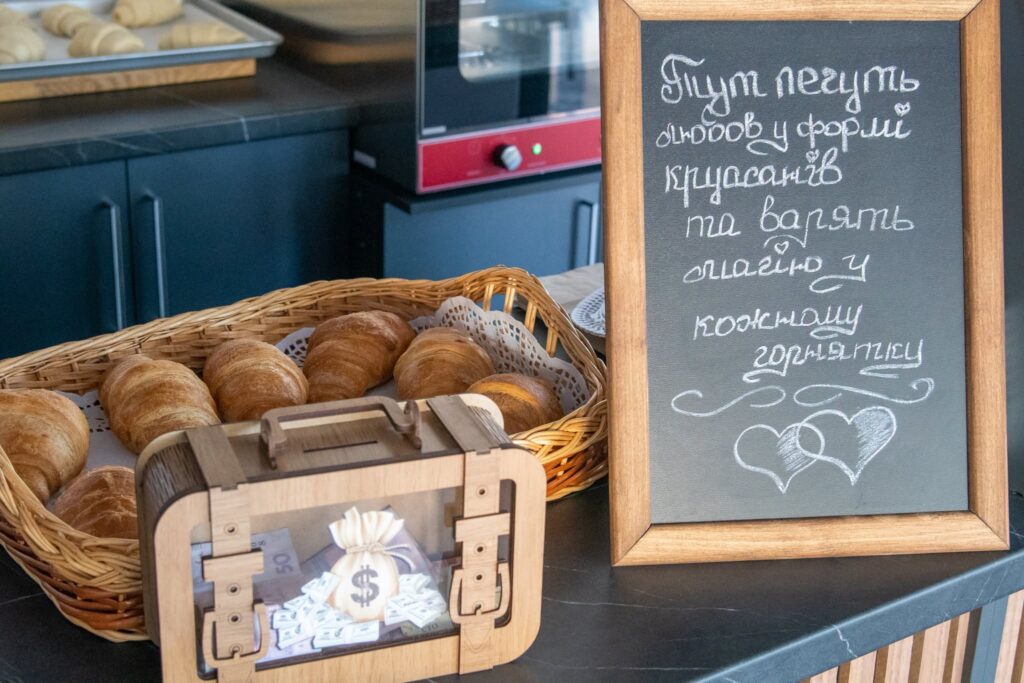 Тут печуть
любов у формі
круасанів
та варять
магію у
кожному
горнятку
$
50